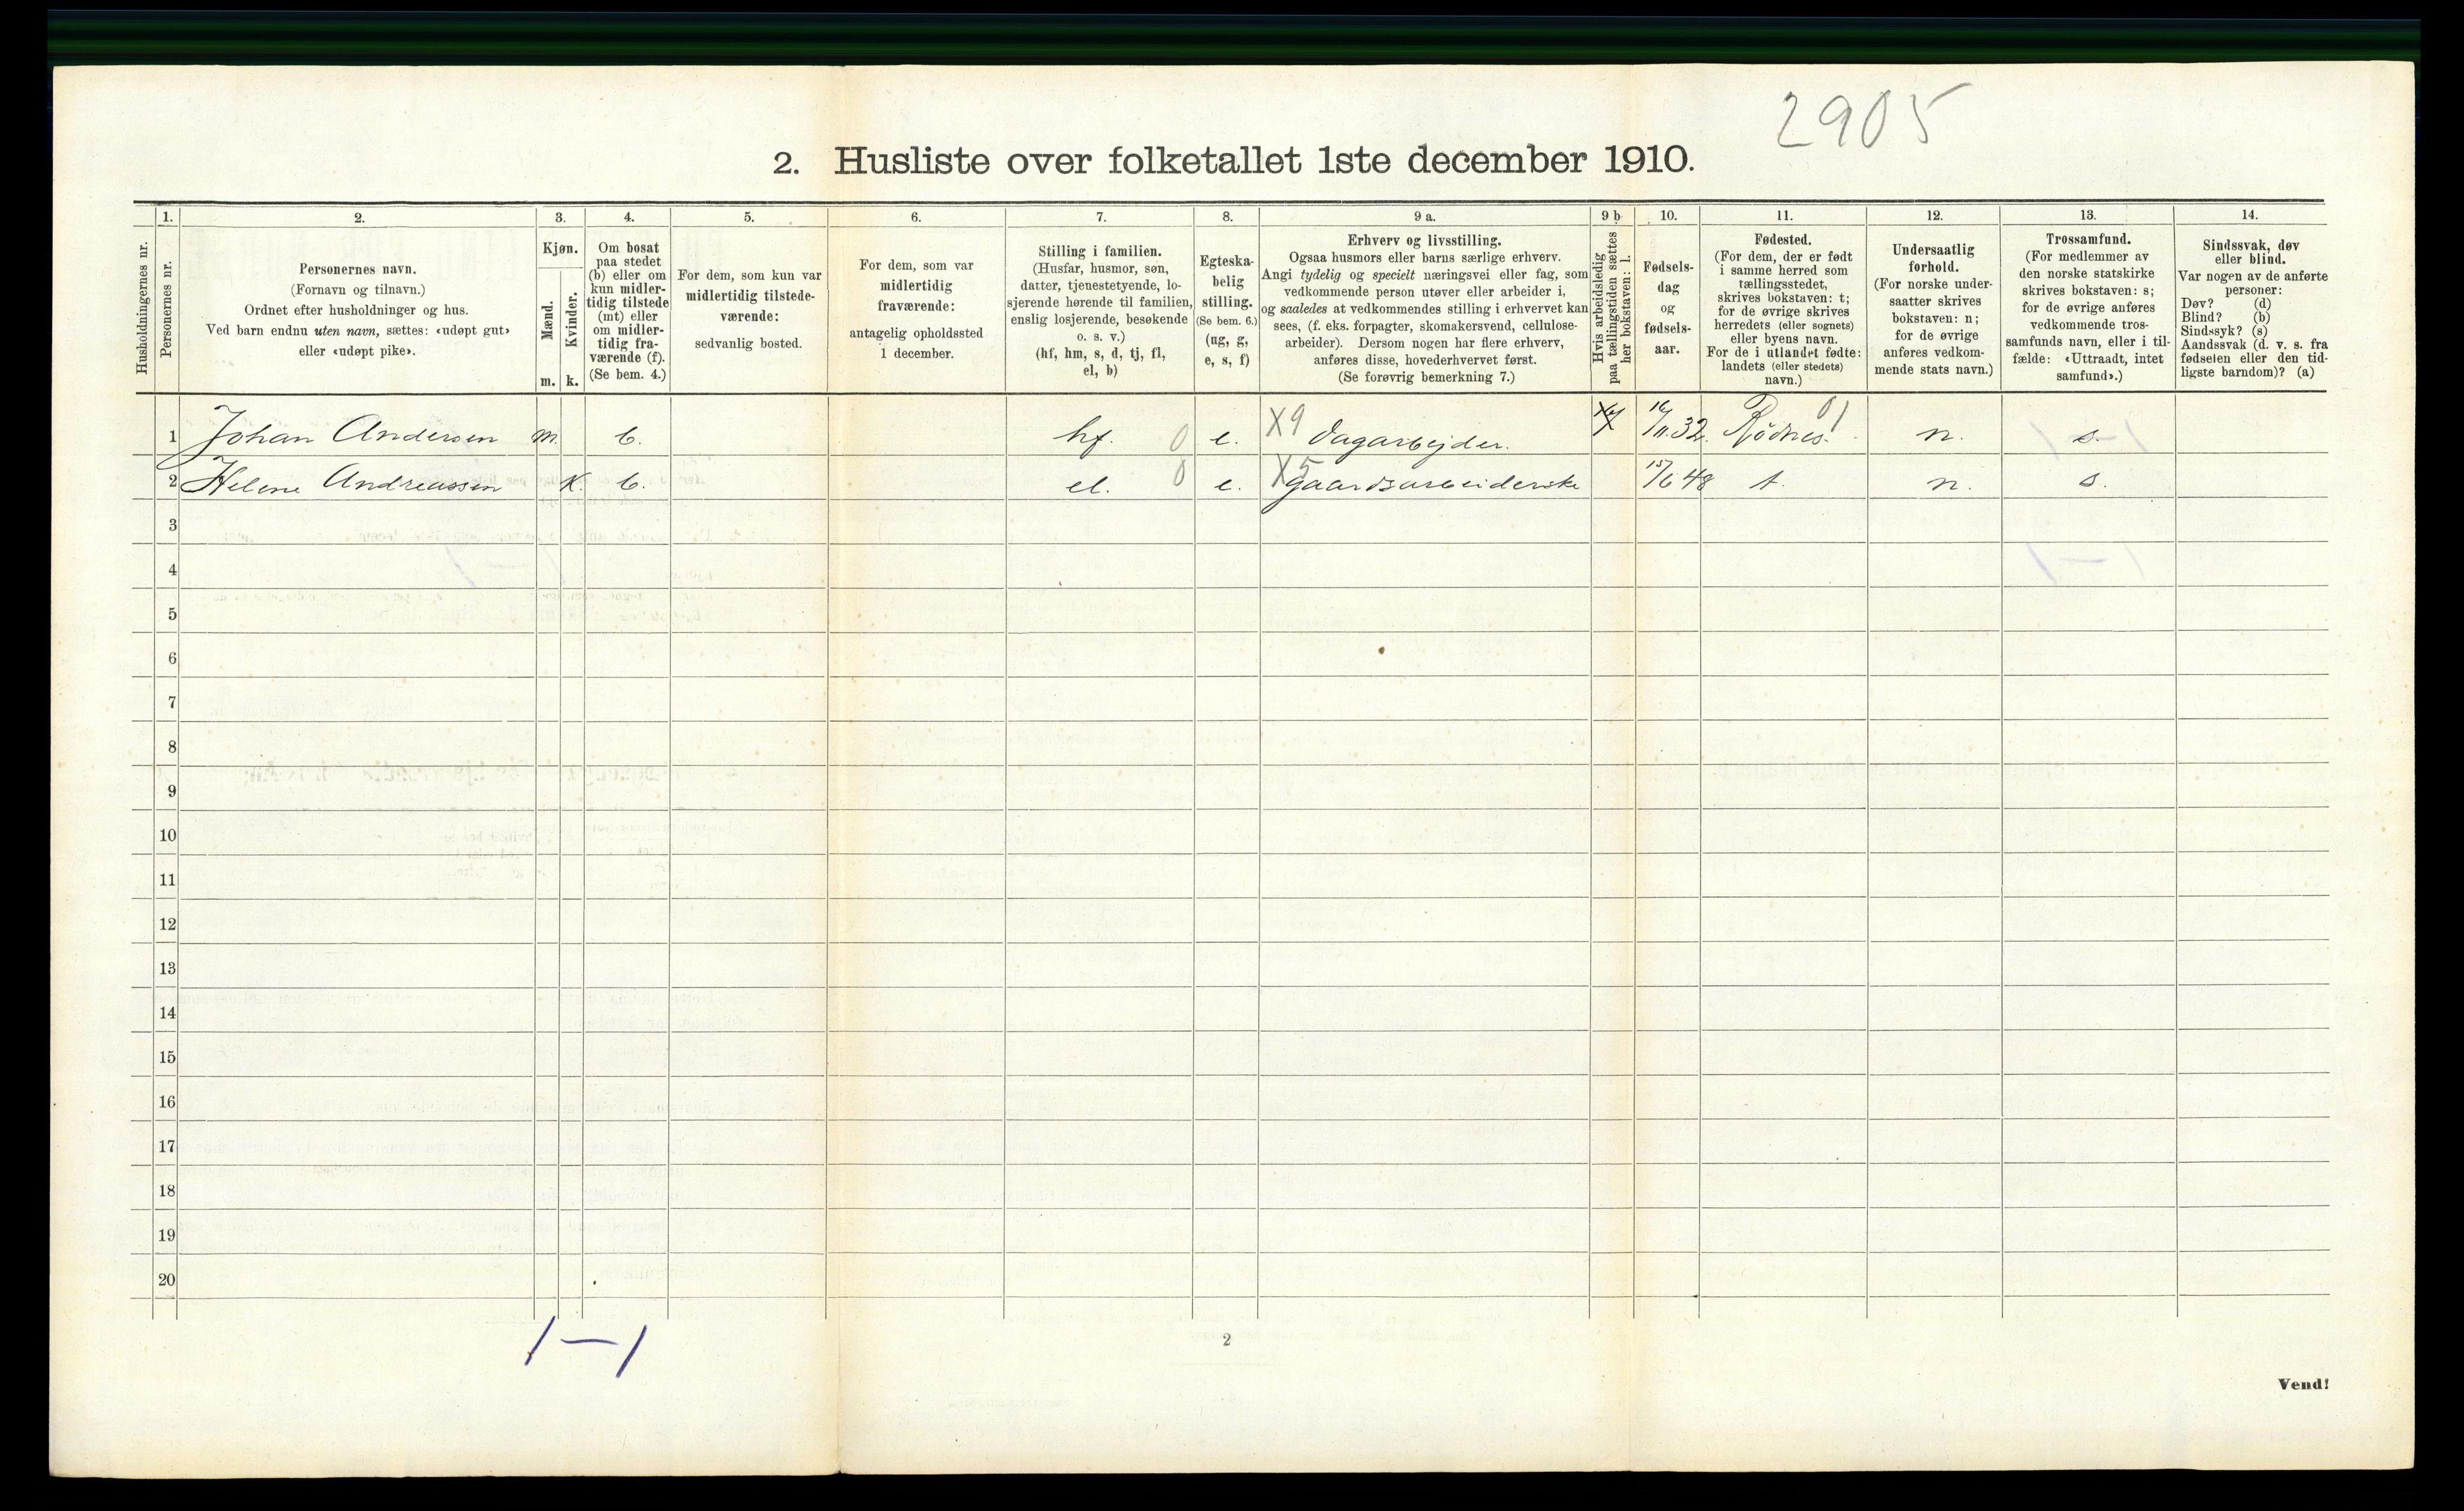 2905
2. Husliste over folketallet 1ste december 1910.
Husholdningernes nr.
1.
Personernes nr.
2.
Personernes navn.
(Fornavn og tilnavn.)
Ordnet efter husholdninger og hus.
Ved barn endnu uten navn, sættes: «udøpt gut»
eller «udøpt pike».
3.
Kjøn.
Mænd.
m.
Kvinder.
k.
4.
Om bosat
paa stedet
(b) eller om
kun midler-
tidig tilstede
(mt) eller
om midler-
tidig fra-
værende (f).
(Se bem. 4.)
5.
For dem, som kun var
midlertidig tilstede-
værende:
sedvanlig bosted.
6.
For dem, som var
midlertidig
fraværende:
antagelig opholdssted
1 december.
7.
Stilling i familien.
(Husfar, husmor, søn,
datter, tjenestetyende, lo-
sjerende hørende til familien,
enslig losjerende, besøkende
o. s. v.)
(hf, hm, s, d, tj, fl,
el, b)
8.
Egteska-
belig
stilling.
(Se bem. 6.)
(ug, g,
e, s, f)
9 a.
Erhverv og livsstilling.
Ogsaa husmors eller barns særlige erhverv.
Angi tydelig og specielt næringsvei eller fag, som
vedkommende person utøver eller arbeider i,
og saaledes at vedkommendes stilling i erhvervet kan
sees, (f. eks. forpagter, skomakersvend, cellulose-
arbeider). Dersom nogen har flere erhverv,
anføres disse, hovederhvervet først.
(Se forøvrig bemerkning 7.)
9 b
Hvis arbeidsledig
paa tællingstiden sættes
her bokstaven: l.
10.
Fødsels-
dag
og
fødsels-
aar.
11.
Fødested.
(For dem, der er født
i samme herred som
tællingsstedet,
skrives bokstaven: t;
for de øvrige skrives
herredets (eller sognets)
eller byens navn.
For de i utlandet fødte:
landets (eller stedets)
navn.)
12.
Undersaatlig
forhold.
(For norske under-
saatter skrives
bokstaven: n;
for de øvrige
anføres vedkom-
mende stats navn.)
13.
Trossamfund.
(For medlemmer av
den norske statskirke
skrives bokstaven: s;
for de øvrige anføres
vedkommende tros-
samfunds navn, eller i til-
fælde: «Uttraadt, intet
samfund».)
14.
Sindssvak, døv
eller blind.
Var nogen av de anførte
personer:
Døv? (d)
Blind? (b)
Sindssyk? (s)
Aandssvak (d. v. s. fra
fødselen eller den tid-
ligste barndom)? (a)
1 Johan Andersen m. b. hf. 0 e. X9 Dagarbejder. 16/11.32. Rödnes. 01 n. s.
2 Helene Andreassen K. b. el. 0 e. X5 gaardsarbeiderske 15/6 48 t. n. s.
3
4
5
6
7
8
9
10
11
12
13
14
15
16
17
18
19
20
1—1
2
Vend!